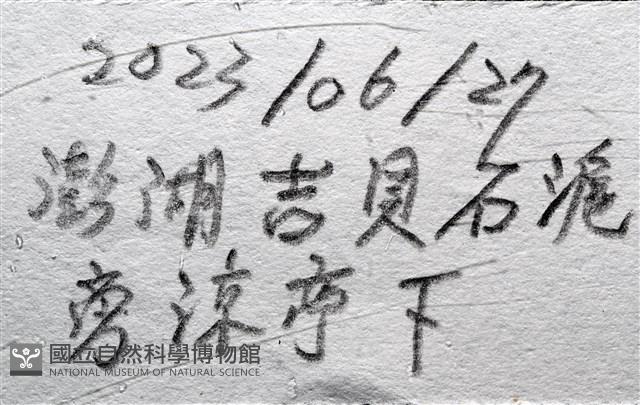 2023/06/27
澎湖吉貝石滬
旁涼亭下
國立自然科學博物館
NATIONAL MUSEUM OF NATURAL SCIENCE